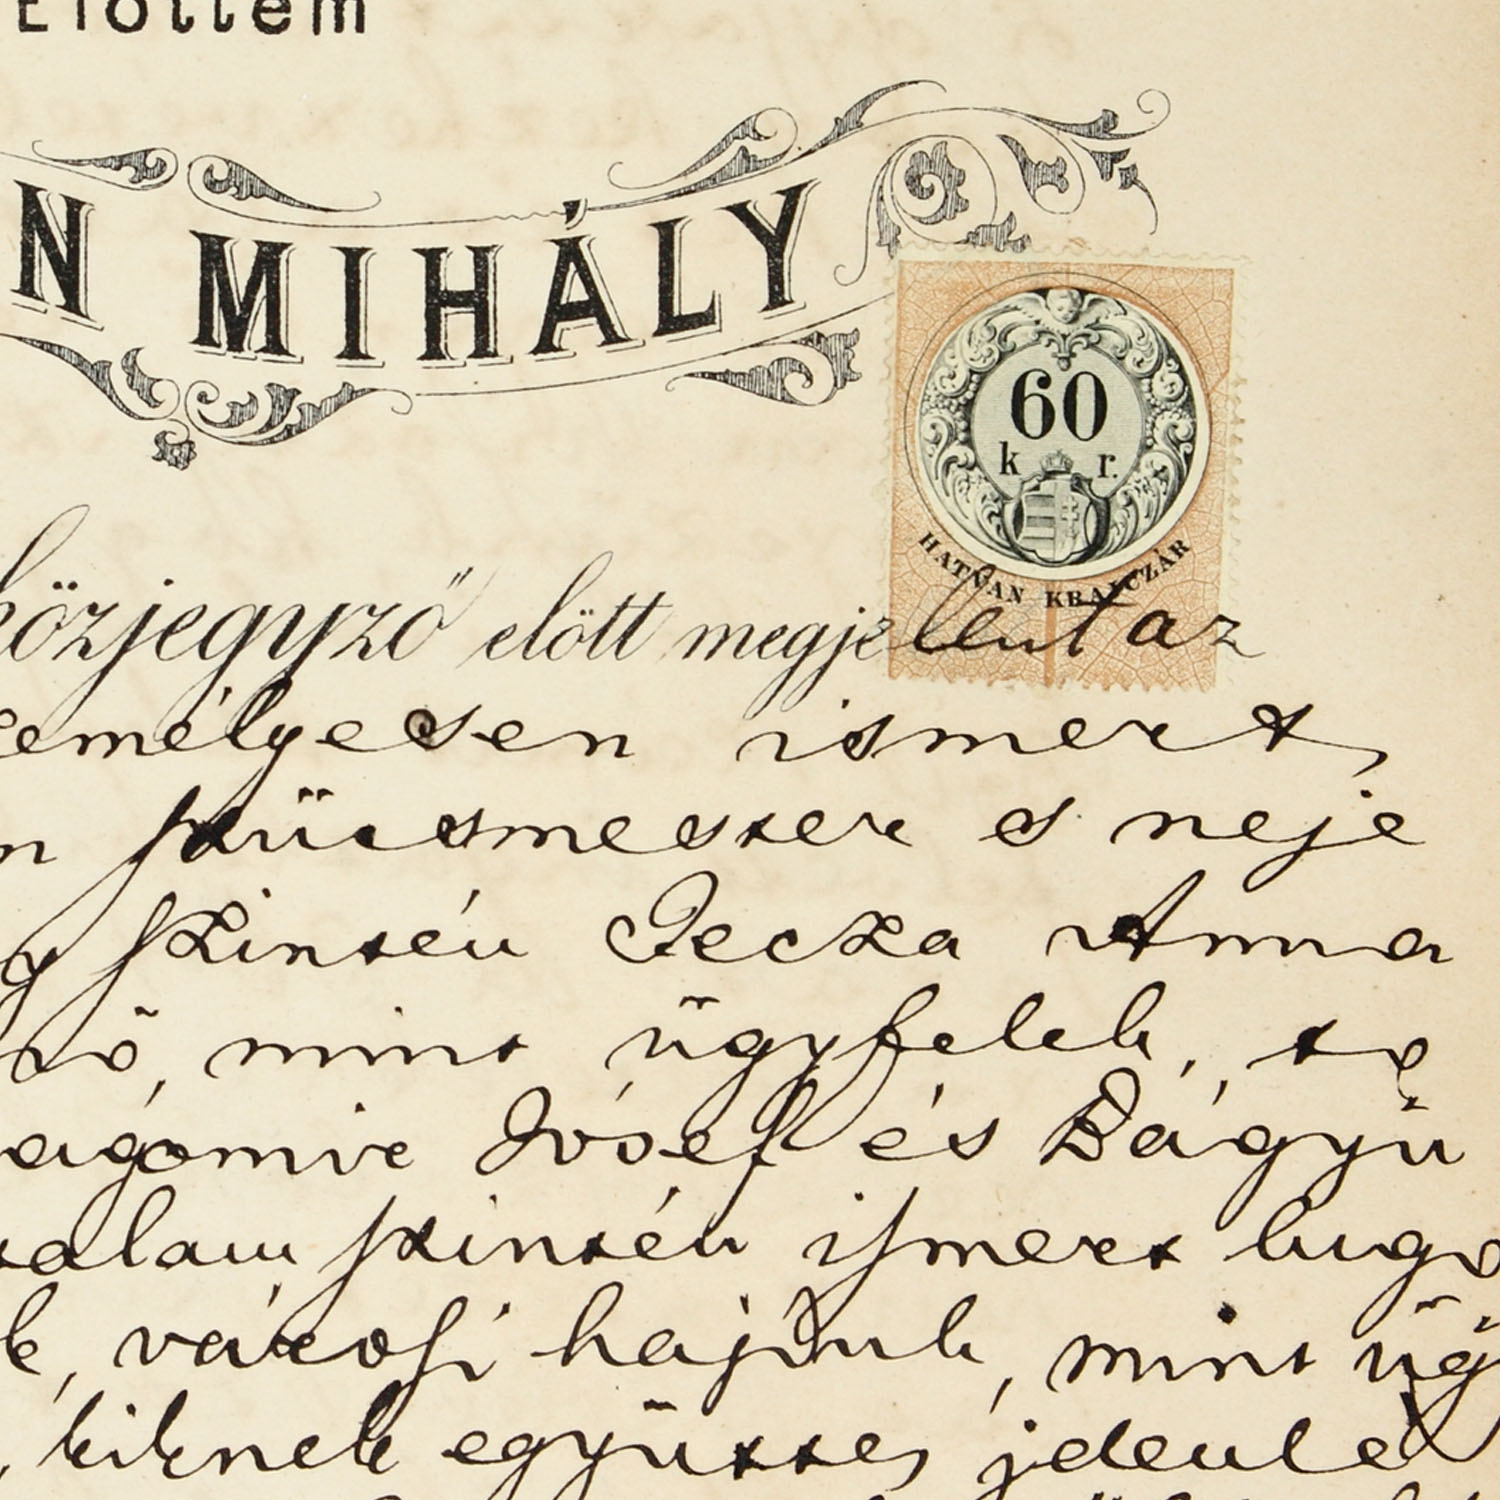 Előttem
N MIHÁLY
60
k r.
HATVAN KRAJCZÁR
közjegyző előtt megjelent az
emélyesen ismert,
n szűcsmester s neje
szintén Anna
mint ügyfelek,
József és
szintén ismert
k, városi hajduk, mint üg
, kiknek együttes